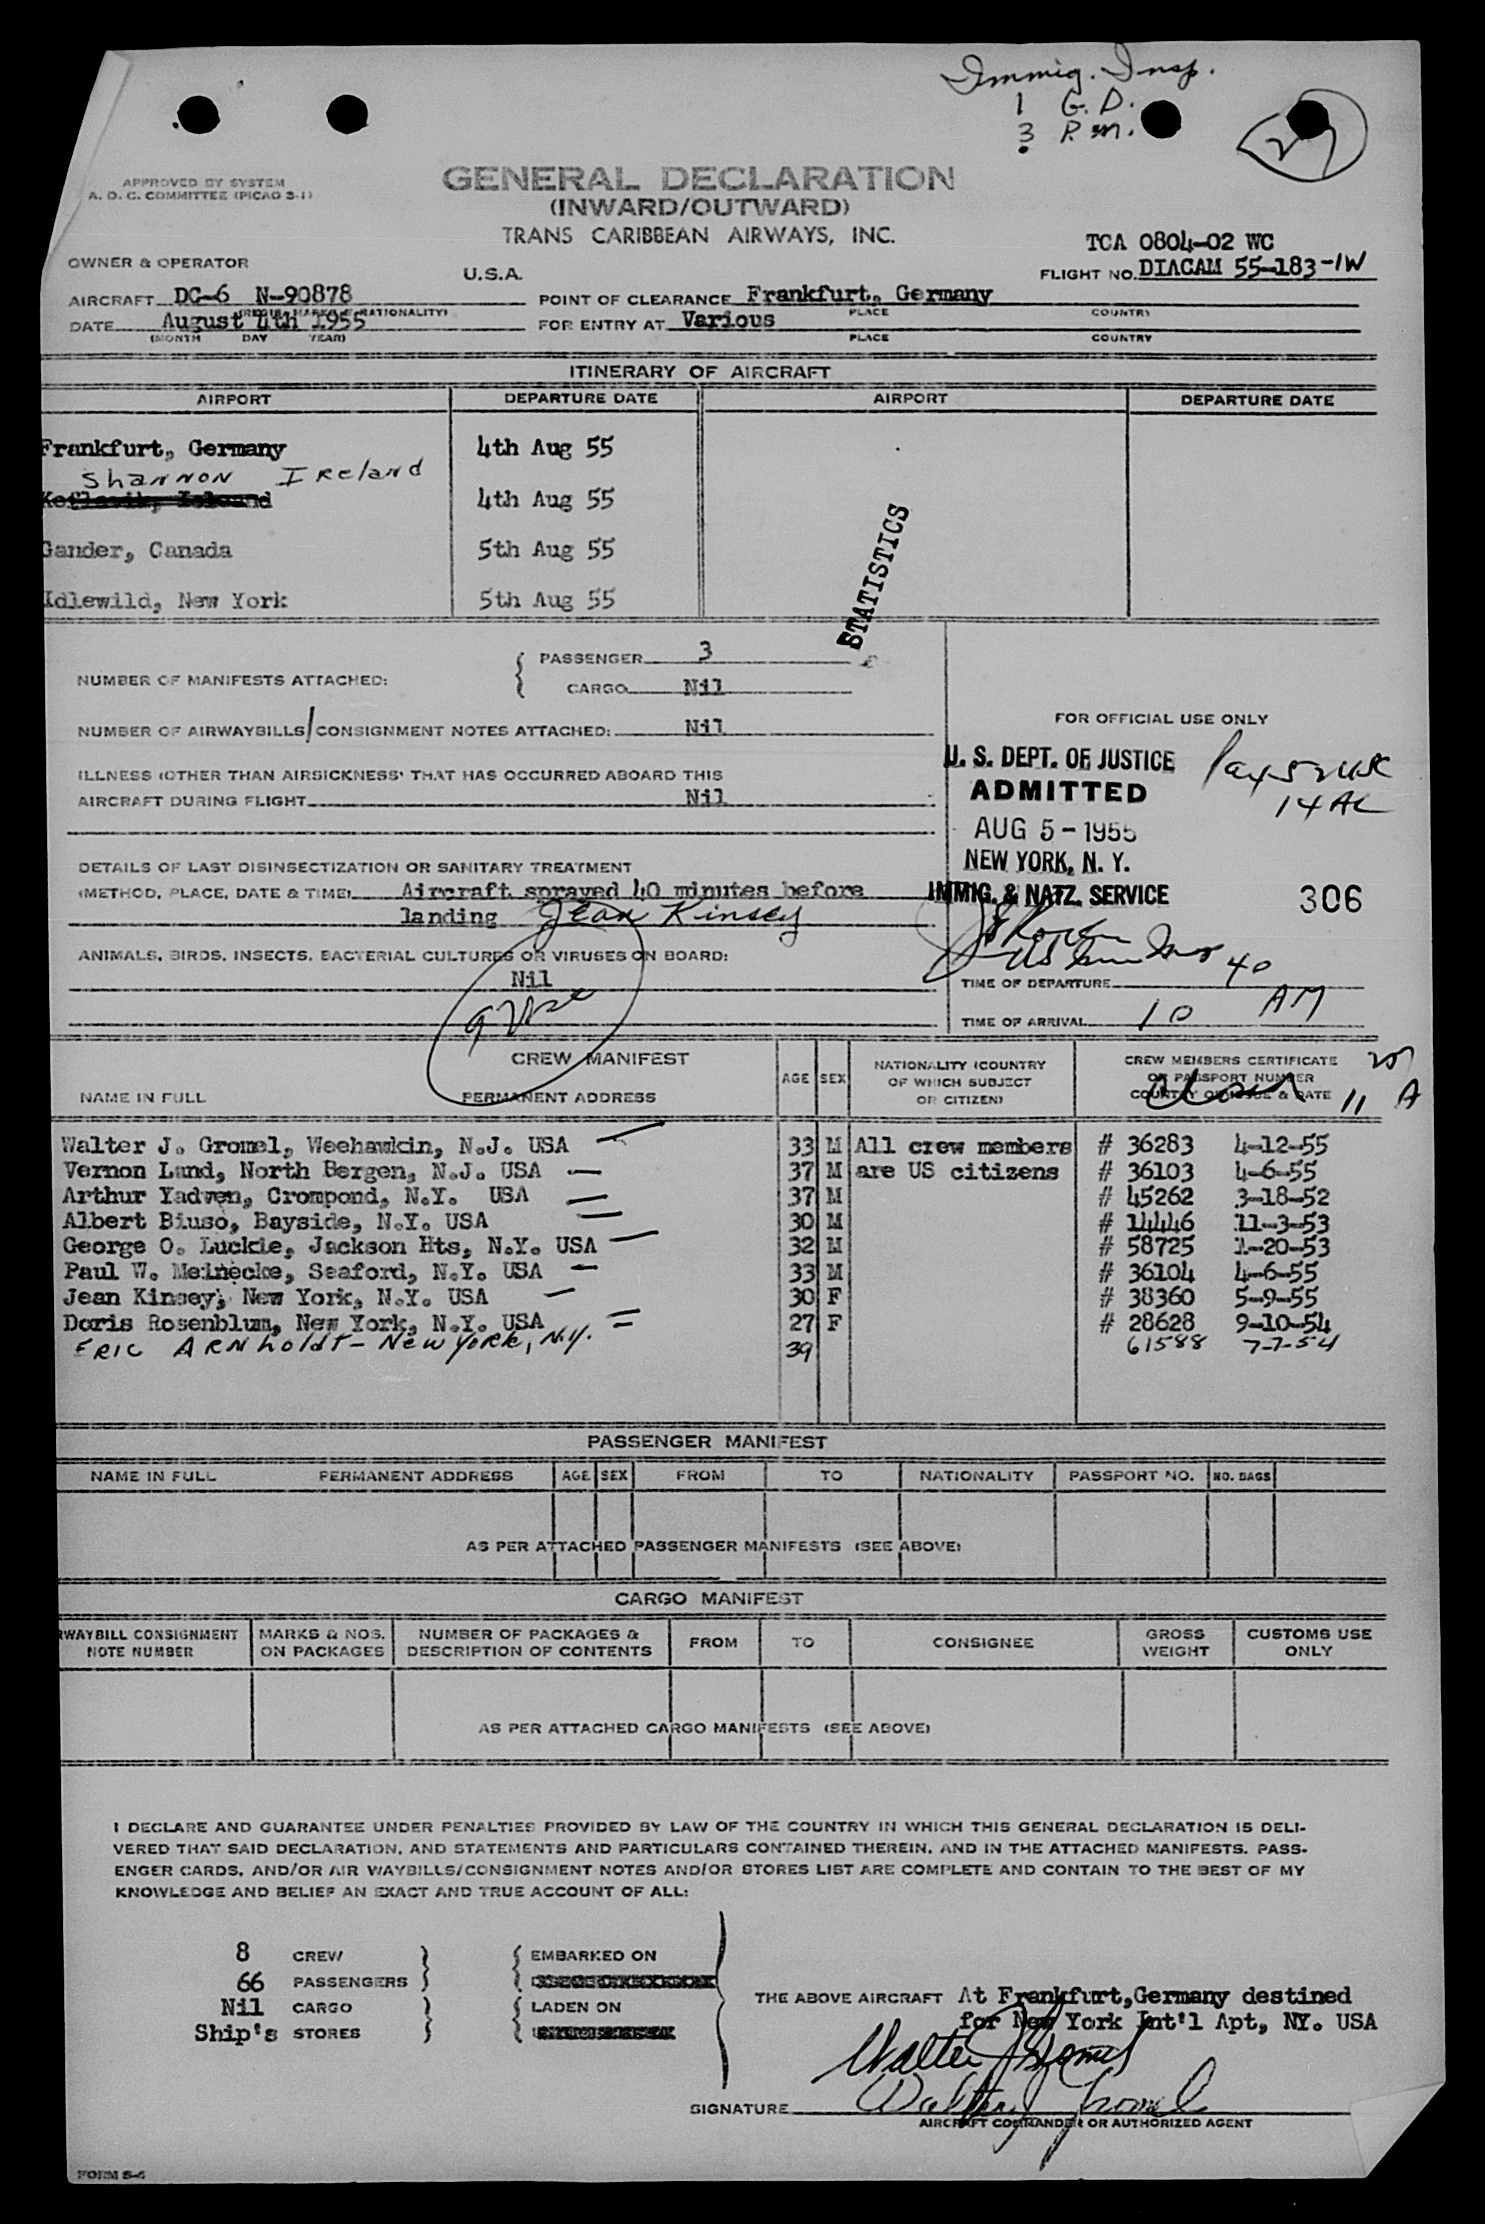 Immig. Insp.
1 G.D.
3 P.M.
APPROVED BY SYSTEM
A. O. C. COMMITTEE (PICAO S-1)
GENERAL DECLARATION
(INWARD/OUTWARD)
TRANS CARIBBEAN AIRWAYS, INC.
TCA 0804-02 WC
OWNER & OPERATOR
U.S.A.
FLIGHT NO. DIACAM 55-183-1W
AIRCRAFT DC-6 N-90878
POINT OF CLEARANCE Frankfurt, Germany
PLACE COUNTRY
DATE August 4th 1955
(MONTH DAY YEAR)
FOR ENTRY AT Various
PLACE COUNTRY
ITINERARY OF AIRCRAFT
AIRPORT DEPARTURE DATE AIRPORT DEPARTURE DATE
Frankfurt, Germany 4th Aug 55
Shannon Ireland
4th Aug 55
Gander, Canada 5th Aug 55
Idlewild, New York 5th Aug 55
STATISTICS
NUMBER OF MANIFESTS ATTACHED:
PASSENGER 3
CARGO Nil
NUMBER OF AIRWAYBILLS/CONSIGNMENT NOTES ATTACHED: Nil
ILLNESS (OTHER THAN AIRSICKNESS) THAT HAS OCCURRED ABOARD THIS
AIRCRAFT DURING FLIGHT Nil
DETAILS OF LAST DISINSECTIZATION OR SANITARY TREATMENT
(METHOD, PLACE, DATE & TIME) Aircraft sprayed 40 minutes before
landing Jean Kinsey
ANIMALS, BIRDS, INSECTS, BACTERIAL CULTURES OR VIRUSES ON BOARD:
Nil
FOR OFFICIAL USE ONLY
U. S. DEPT. OF JUSTICE
ADMITTED
AUG 5 - 1955
NEW YORK, N. Y.
IMMIG. & NATZ. SERVICE
306
TIME OF DEPARTURE
TIME OF ARRIVAL 10 40 AM
CREW MANIFEST
NAME IN FULL PERMANENT ADDRESS AGE SEX
NATIONALITY (COUNTRY
OF WHICH SUBJECT
OR CITIZEN)
CREW MEMBERS CERTIFICATE
OR PASSPORT NUMBER
COUNTRY OF ISSUE & DATE
Walter J. Gromel, Weehawkin, N.J. USA 33 M All crew members # 36283 4-12-55
Vernon Land, North Bergen, N.J. USA 37 M are US citizens # 36103 4-6-55
Arthur Yadven, Crompond, N.Y. USA 37 M # 45262 3-18-52
Albert Biuso, Bayside, N.Y. USA 30 M # 14446 11-3-53
George O. Luckie, Jackson Hts, N.Y. USA 32 M # 58725 1-20-53
Paul W. Meinecke, Seaford, N.Y. USA 33 M # 36104 4-6-55
Jean Kinsey, New York, N.Y. USA 30 F # 38360 5-9-55
Doris Rosenblum, New York, N.Y. USA 27 F # 28628 9-10-54
ERIC ARNholdt - New York, N.Y. 39 61588 7-7-54
PASSENGER MANIFEST
NAME IN FULL PERMANENT ADDRESS AGE SEX FROM TO NATIONALITY PASSPORT NO. NO. BAGS
AS PER ATTACHED PASSENGER MANIFESTS (SEE ABOVE)
CARGO MANIFEST
RWAYBILL CONSIGNMENT
NOTE NUMBER
MARKS & NOS.
ON PACKAGES
NUMBER OF PACKAGES &
DESCRIPTION OF CONTENTS
FROM TO CONSIGNEE
GROSS
WEIGHT
CUSTOMS USE
ONLY
AS PER ATTACHED CARGO MANIFESTS (SEE ABOVE)
I DECLARE AND GUARANTEE UNDER PENALTIES PROVIDED BY LAW OF THE COUNTRY IN WHICH THIS GENERAL DECLARATION IS DELI-
VERED THAT SAID DECLARATION, AND STATEMENTS AND PARTICULARS CONTAINED THEREIN, AND IN THE ATTACHED MANIFESTS, PASS-
ENGER CARDS, AND/OR AIR WAYBILLS/CONSIGNMENT NOTES AND/OR STORES LIST ARE COMPLETE AND CONTAIN TO THE BEST OF MY
KNOWLEDGE AND BELIEF AN EXACT AND TRUE ACCOUNT OF ALL:
8 CREW
66 PASSENGERS
Nil CARGO
Ship's STORES
EMBARKED ON
LADEN ON
THE ABOVE AIRCRAFT At Frankfurt, Germany destined
for New York Int'l Apt, NY. USA
Walter J Gromel
SIGNATURE Walter J Gromel
AIRCRAFT COMMANDER OR AUTHORIZED AGENT
FORM S-4